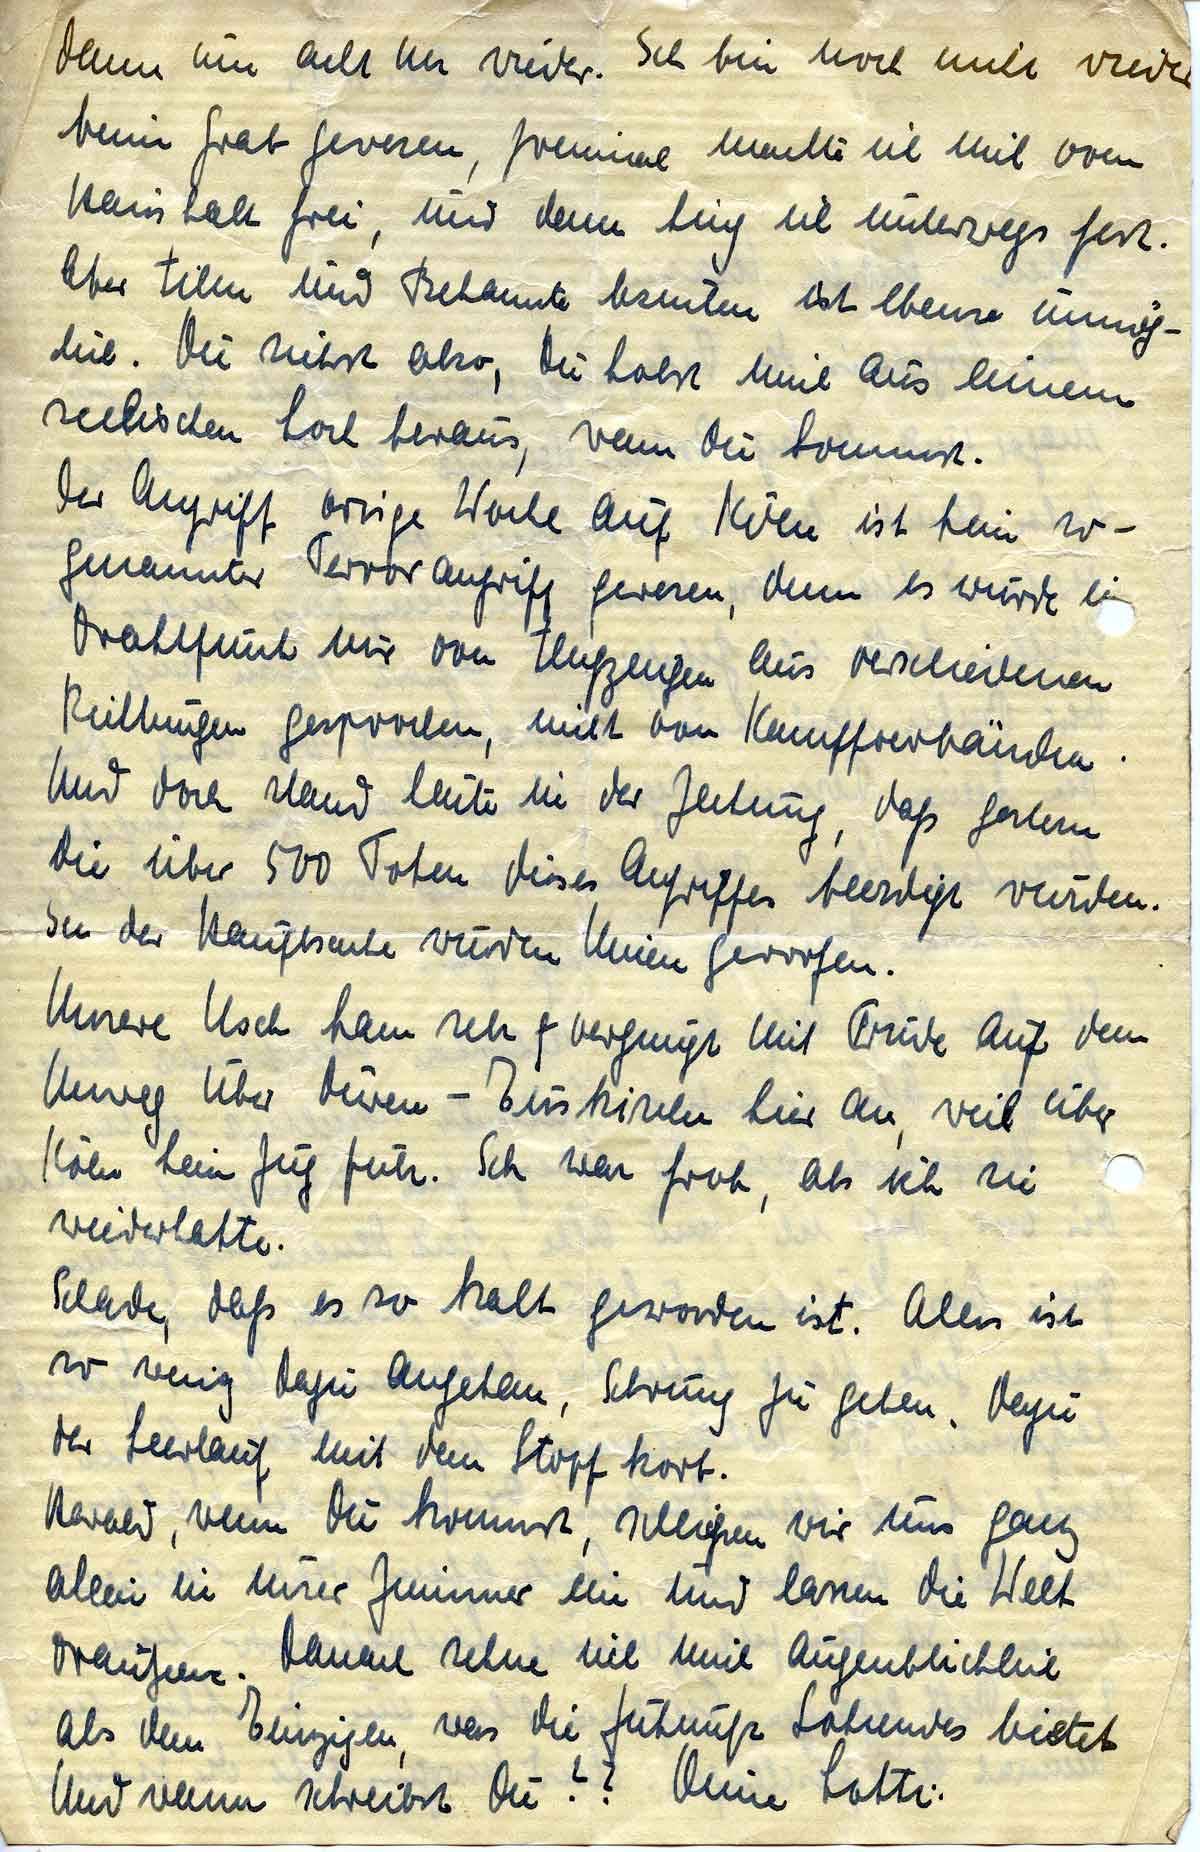 dann um acht Uhr wieder. Ich bin noch nicht wieder
beim Grab gewesen, zweimal machte ich mich vom
Haushalt frei, und dann hing ich unterwegs fest.
Aber Eilen und Bekannte ist ebenso unmög-
lich. Du siehst also, Du holst mich aus einem
seelischen Loch heraus, wenn Du kommst.
Der Angriff vorige Woche auf Köln ist kein so-
genannter Terrorangriff gewesen, denn es wurde i
Drahtfunk nur von Flugzeugen aus verschiedenen
Richtungen gesprochen, nicht von Kampfverbänden.
Und doch stand heute in der Zeitung, daß gestern
die über 500 Toten dieses Angriffes beerdigt wurden.
In der Hauptsache wurden Minen geworfen.
Unsere Usch kam sehr vergnügt mit Trude auf dem
Umweg über Düren - Euskirchen hier an, weil über
Köln kein Zug fuhr. Ich war froh, als ich sie
wiederhatte.
Schade, daß es so kalt geworden ist. Alles ist
so wenig dazu angetan, Schwung zu geben. Dazu
der Leerlauf mit dem Stopfkorb.
Harald, wenn Du kommst, schließen wir uns ganz
allein in unser Zimmer ein und lassen die Welt
draußen. Danach sehne ich mich augenblicklich
als dem Einzigen, was die Zukunft Lohnendes bietet
Und wann schreibst Du?? Deine Lotte.